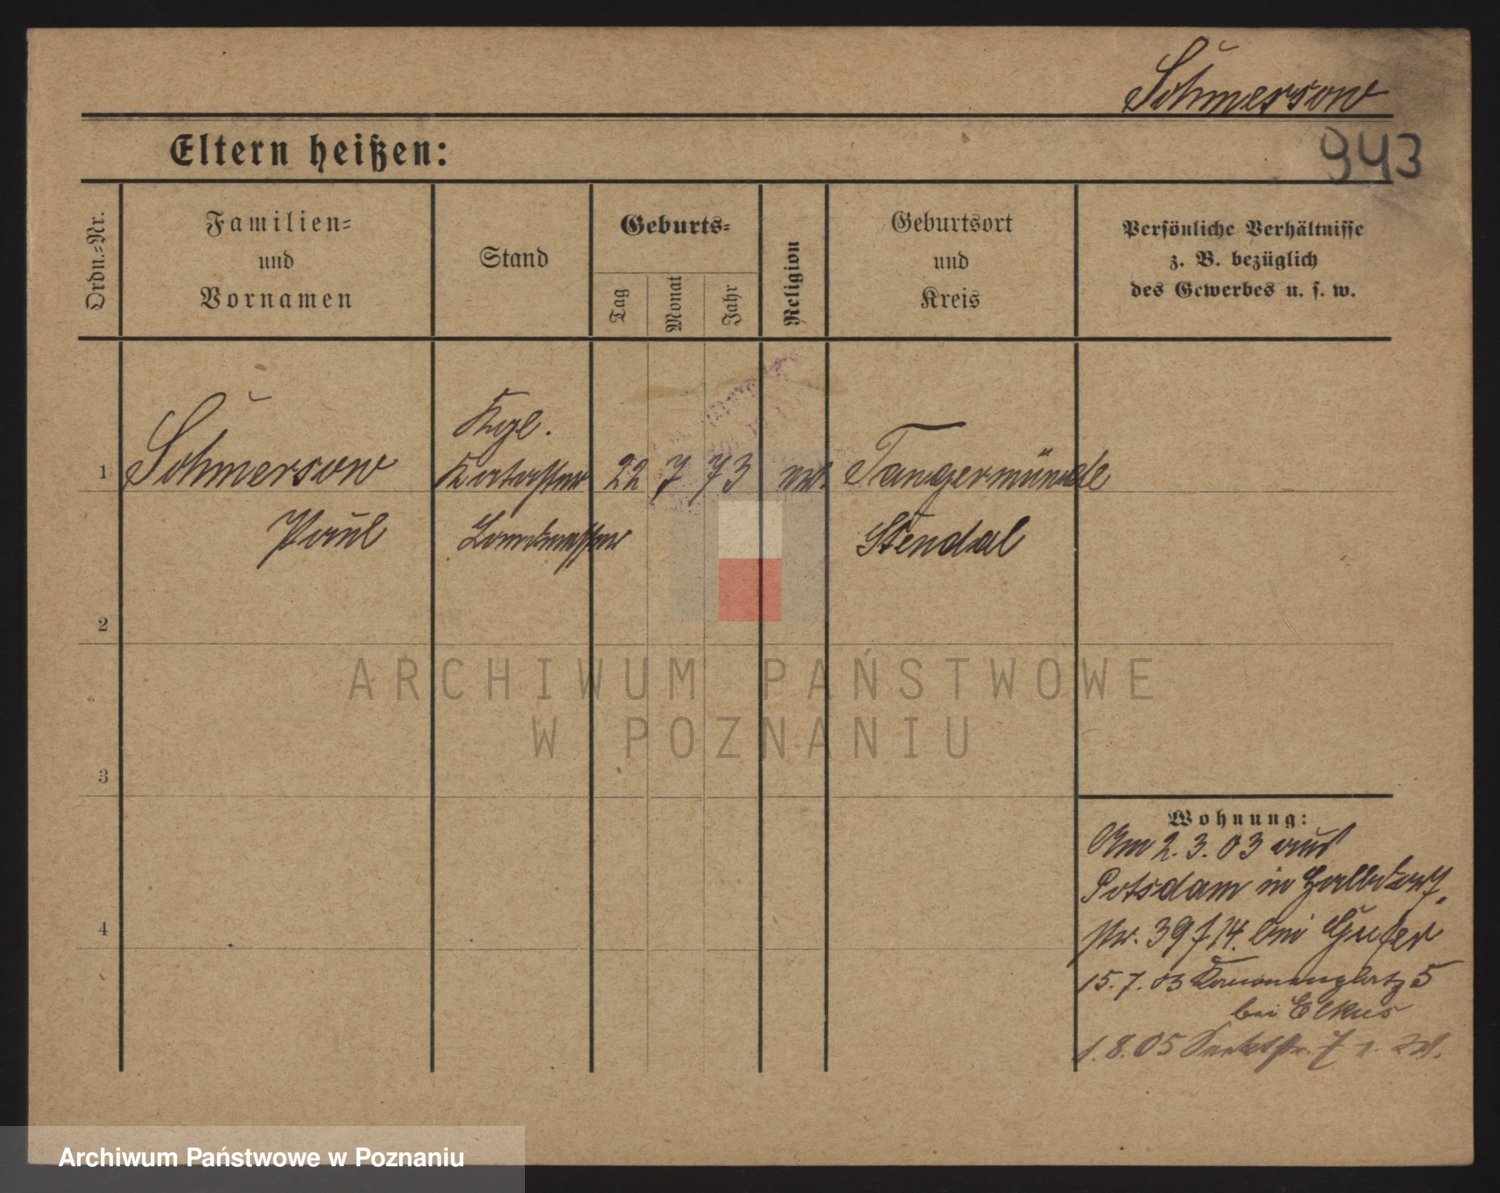 Schmersow
943
Eltern heißen:
Ordn.=Nr.
Familien=
und
Vornamen
Stand
Geburts=
Tag
Monat
Jahr
Religion
Geburtsort
und
Kreis
Persönliche Verhältnisse
z. B. bezüglich
des Gewerbes u. s. w.
1
Schmersow
Paul
Kgl.
Kataster
Landmesser
22
7
73
ev.
Tangermünde
Stendal
2
3
4
Wohnung:
Am 2.3.03 aus
Potsdam in
str. 39 f 14. bei
15.7.03 Kanonenplatz 5
bei Elkus
1.8.05
ARCHIWUM PAŃSTWOWE
W POZNANIU
Archiwum Państwowe w Poznaniu